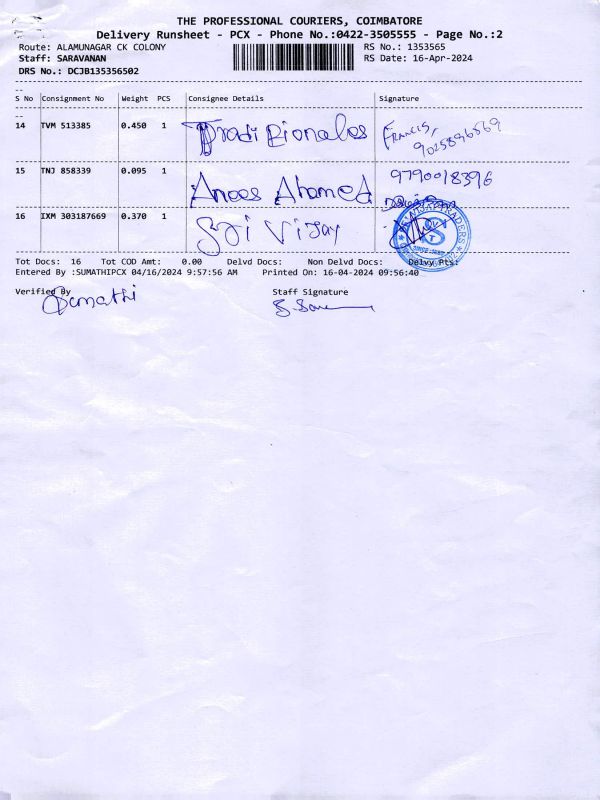 THE PROFESSIONAL COURIERS, COIMBATORE
Delivery Runsheet - PCX - Phone No.:0422-3505555 - Page No.:2
Route: ALAMUNAGAR CK COLONY RS No.: 1353565
Staff: SARAVANAN RS Date: 16-Apr-2024
DRS No.: DCJB135356502
S No Consignment No Weight PCS Consignee Details Signature
14 TVM 513385 0.450 1 Tradizionales Francis,
9025896569
15 TNJ 858339 0.095 1 Anees Ahamed 9790018396
16 IXM 303187669 0.370 1 Sri Vijay
Tot Docs: 16 Tot COD Amt: 0.00 Delvd Docs: Non Delvd Docs: Delvy Pts:
Entered By :SUMATHIPCX 04/16/2024 9:57:56 AM Printed On: 16-04-2024 09:56:40
Verified By Staff Signature
Sumathi